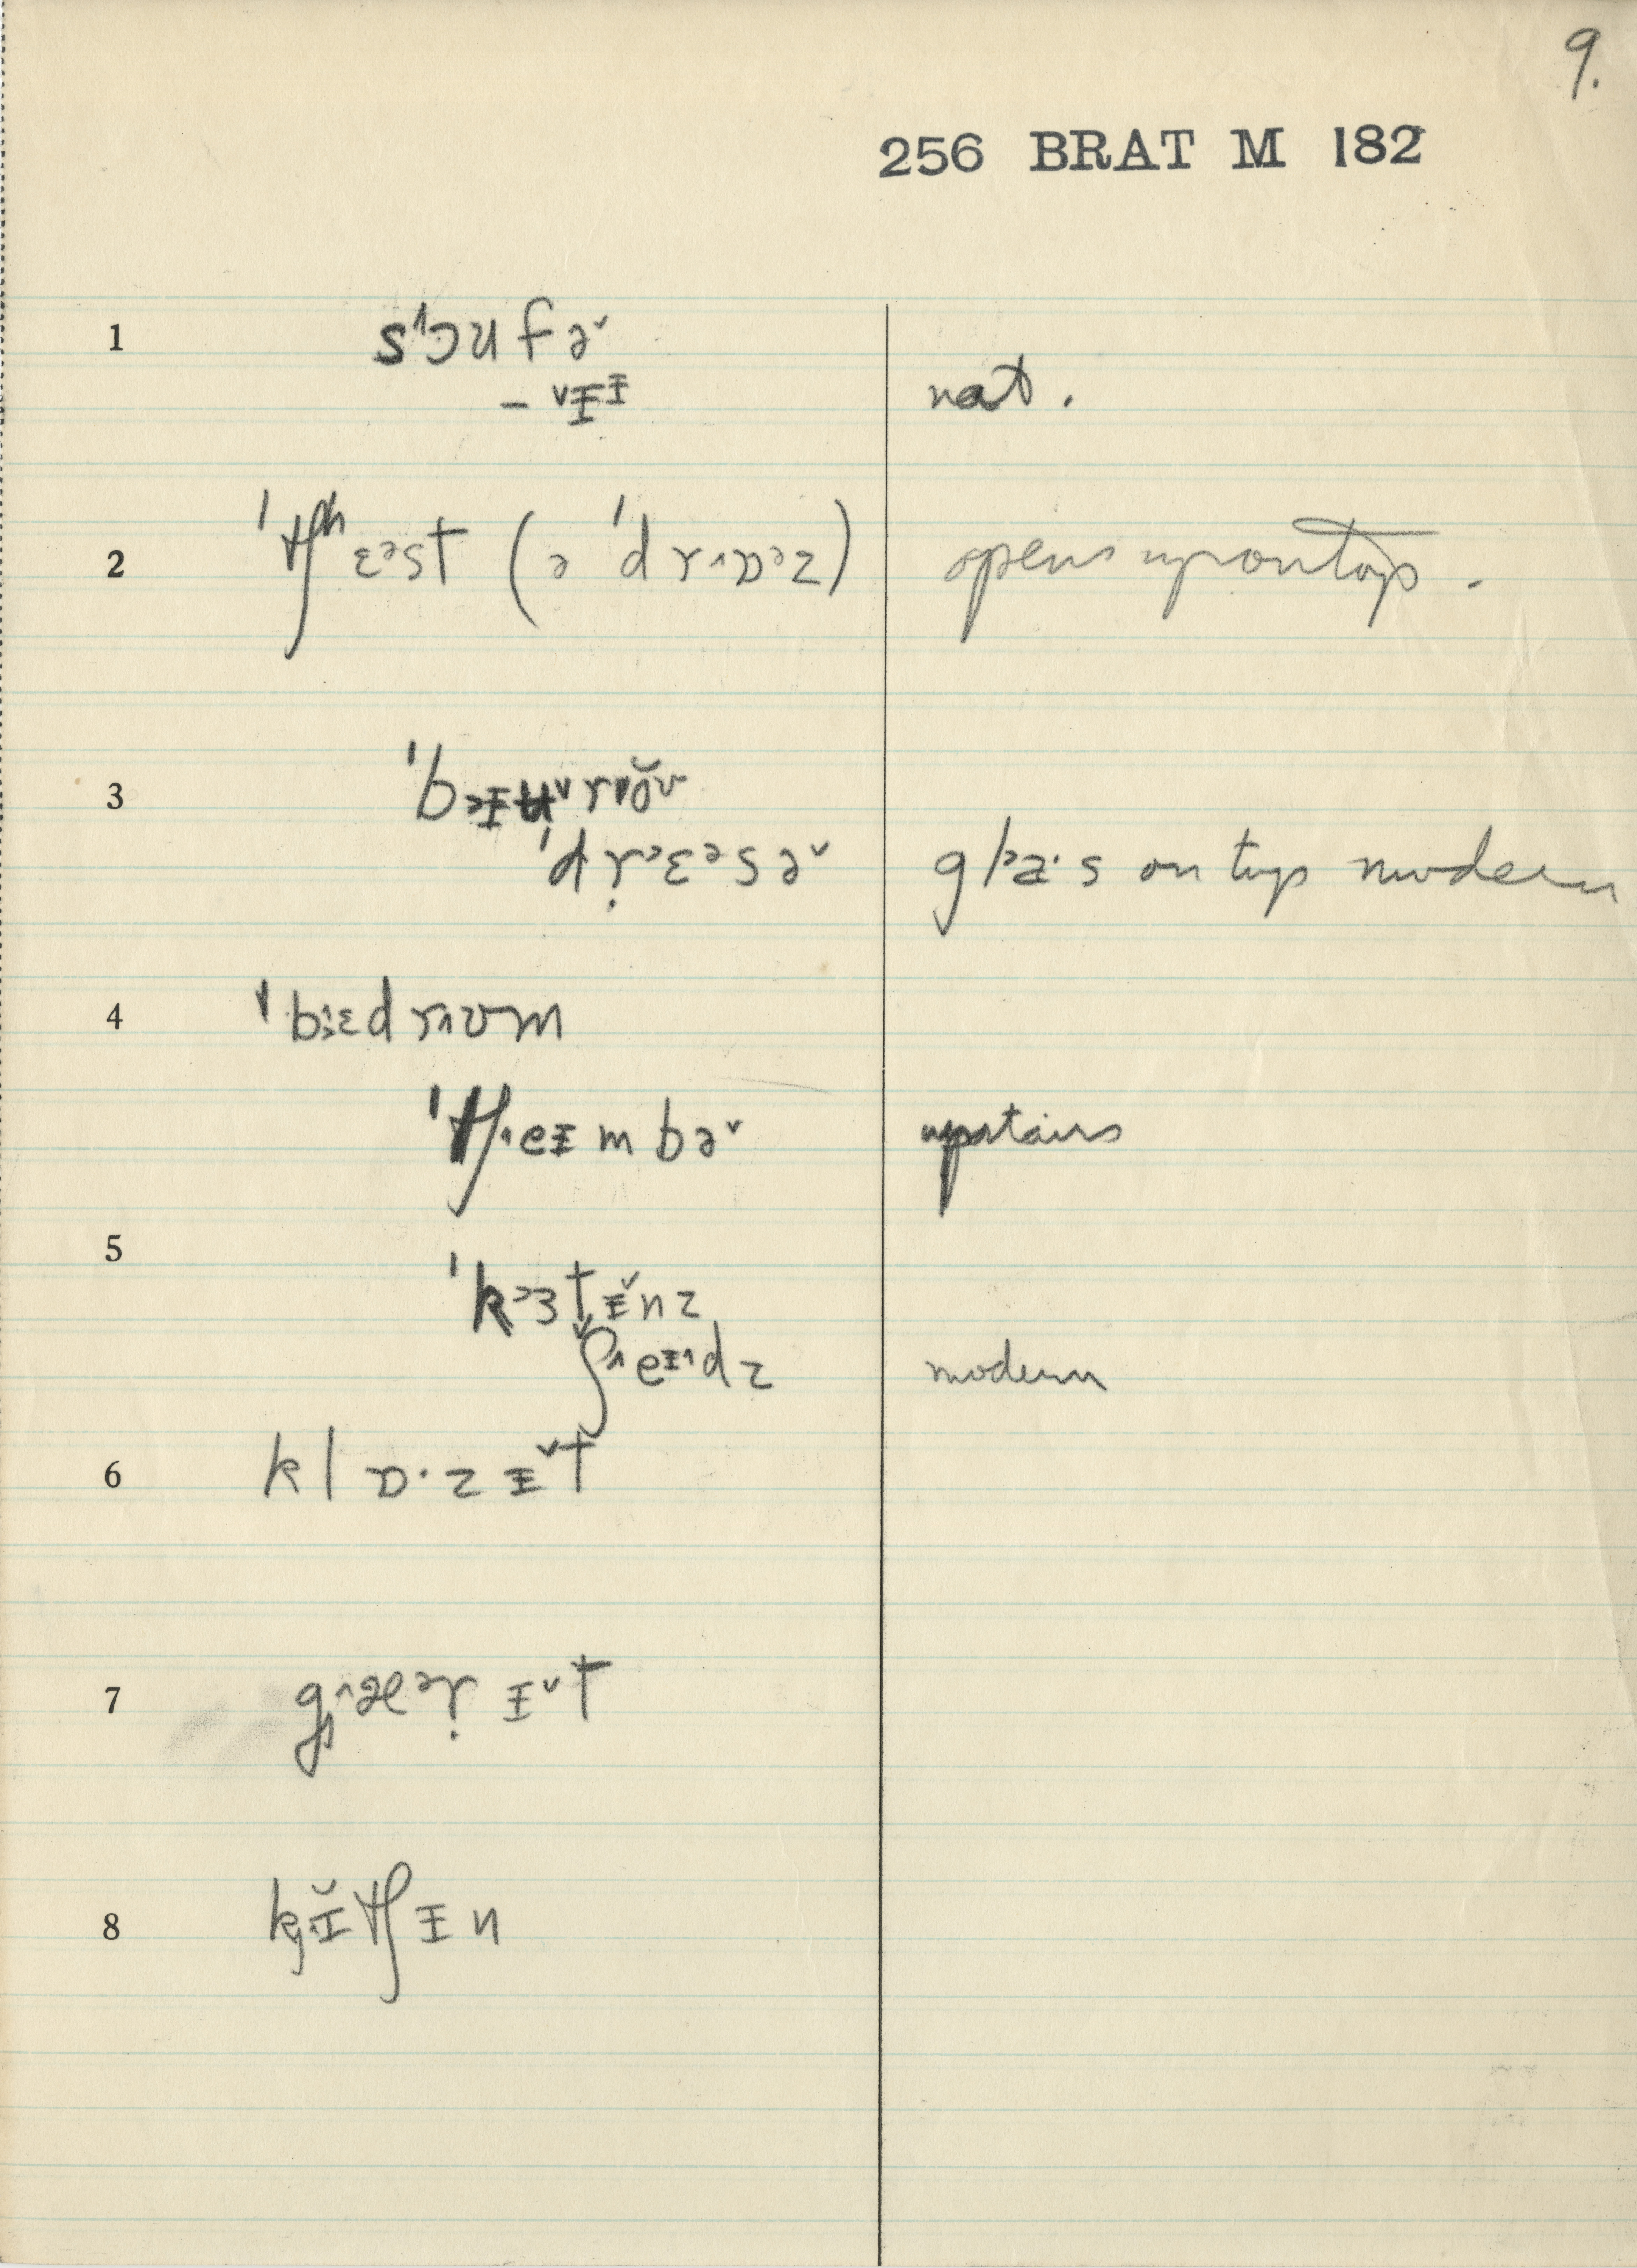 9.
256 BRAT M 182
1
sˈɔufə˅
– ˅ɪɪ
nat.
2
ˈtʃʰɛᵊst (ə ˈdr˄ɒᵊz)
opens upon top.
3
ˈdr̩ᵊɛᵊsə˅
gl˃a·s on top modern
4
ˈbɛd r˄ʊm
ˈtʃ˄eɪmbə˅
upstairs
5
ˈk˃ɜtɪ̆nz
ʃ˄eɪ˄dz
modern
6
klɒ·zɪ˅t
7
g˄æᵊr̩ɪ˅t
8
kɪ̆tʃɪn